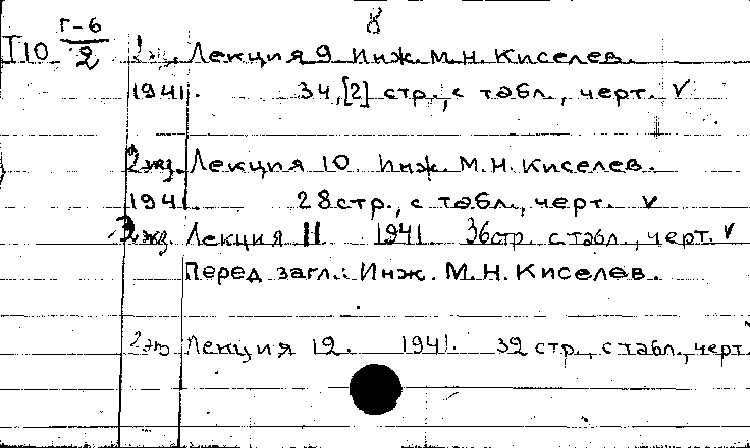 8
I 10 Г-6/2 2 экз. Лекция 9 Инж. М.Н. Киселев.
1941. 34, [2] стр., с табл., черт. ✓
2 экз. Лекция 10 Инж. М.Н. Киселев.
1941. 28 стр., с табл., черт. ✓
2 экз. Лекция 11 1941 36 стр. с табл., черт. ✓
Перед загл.: Инж. М.Н. Киселев.
2 экз Лекция 12. 1941. 32 стр., с табл., черт.